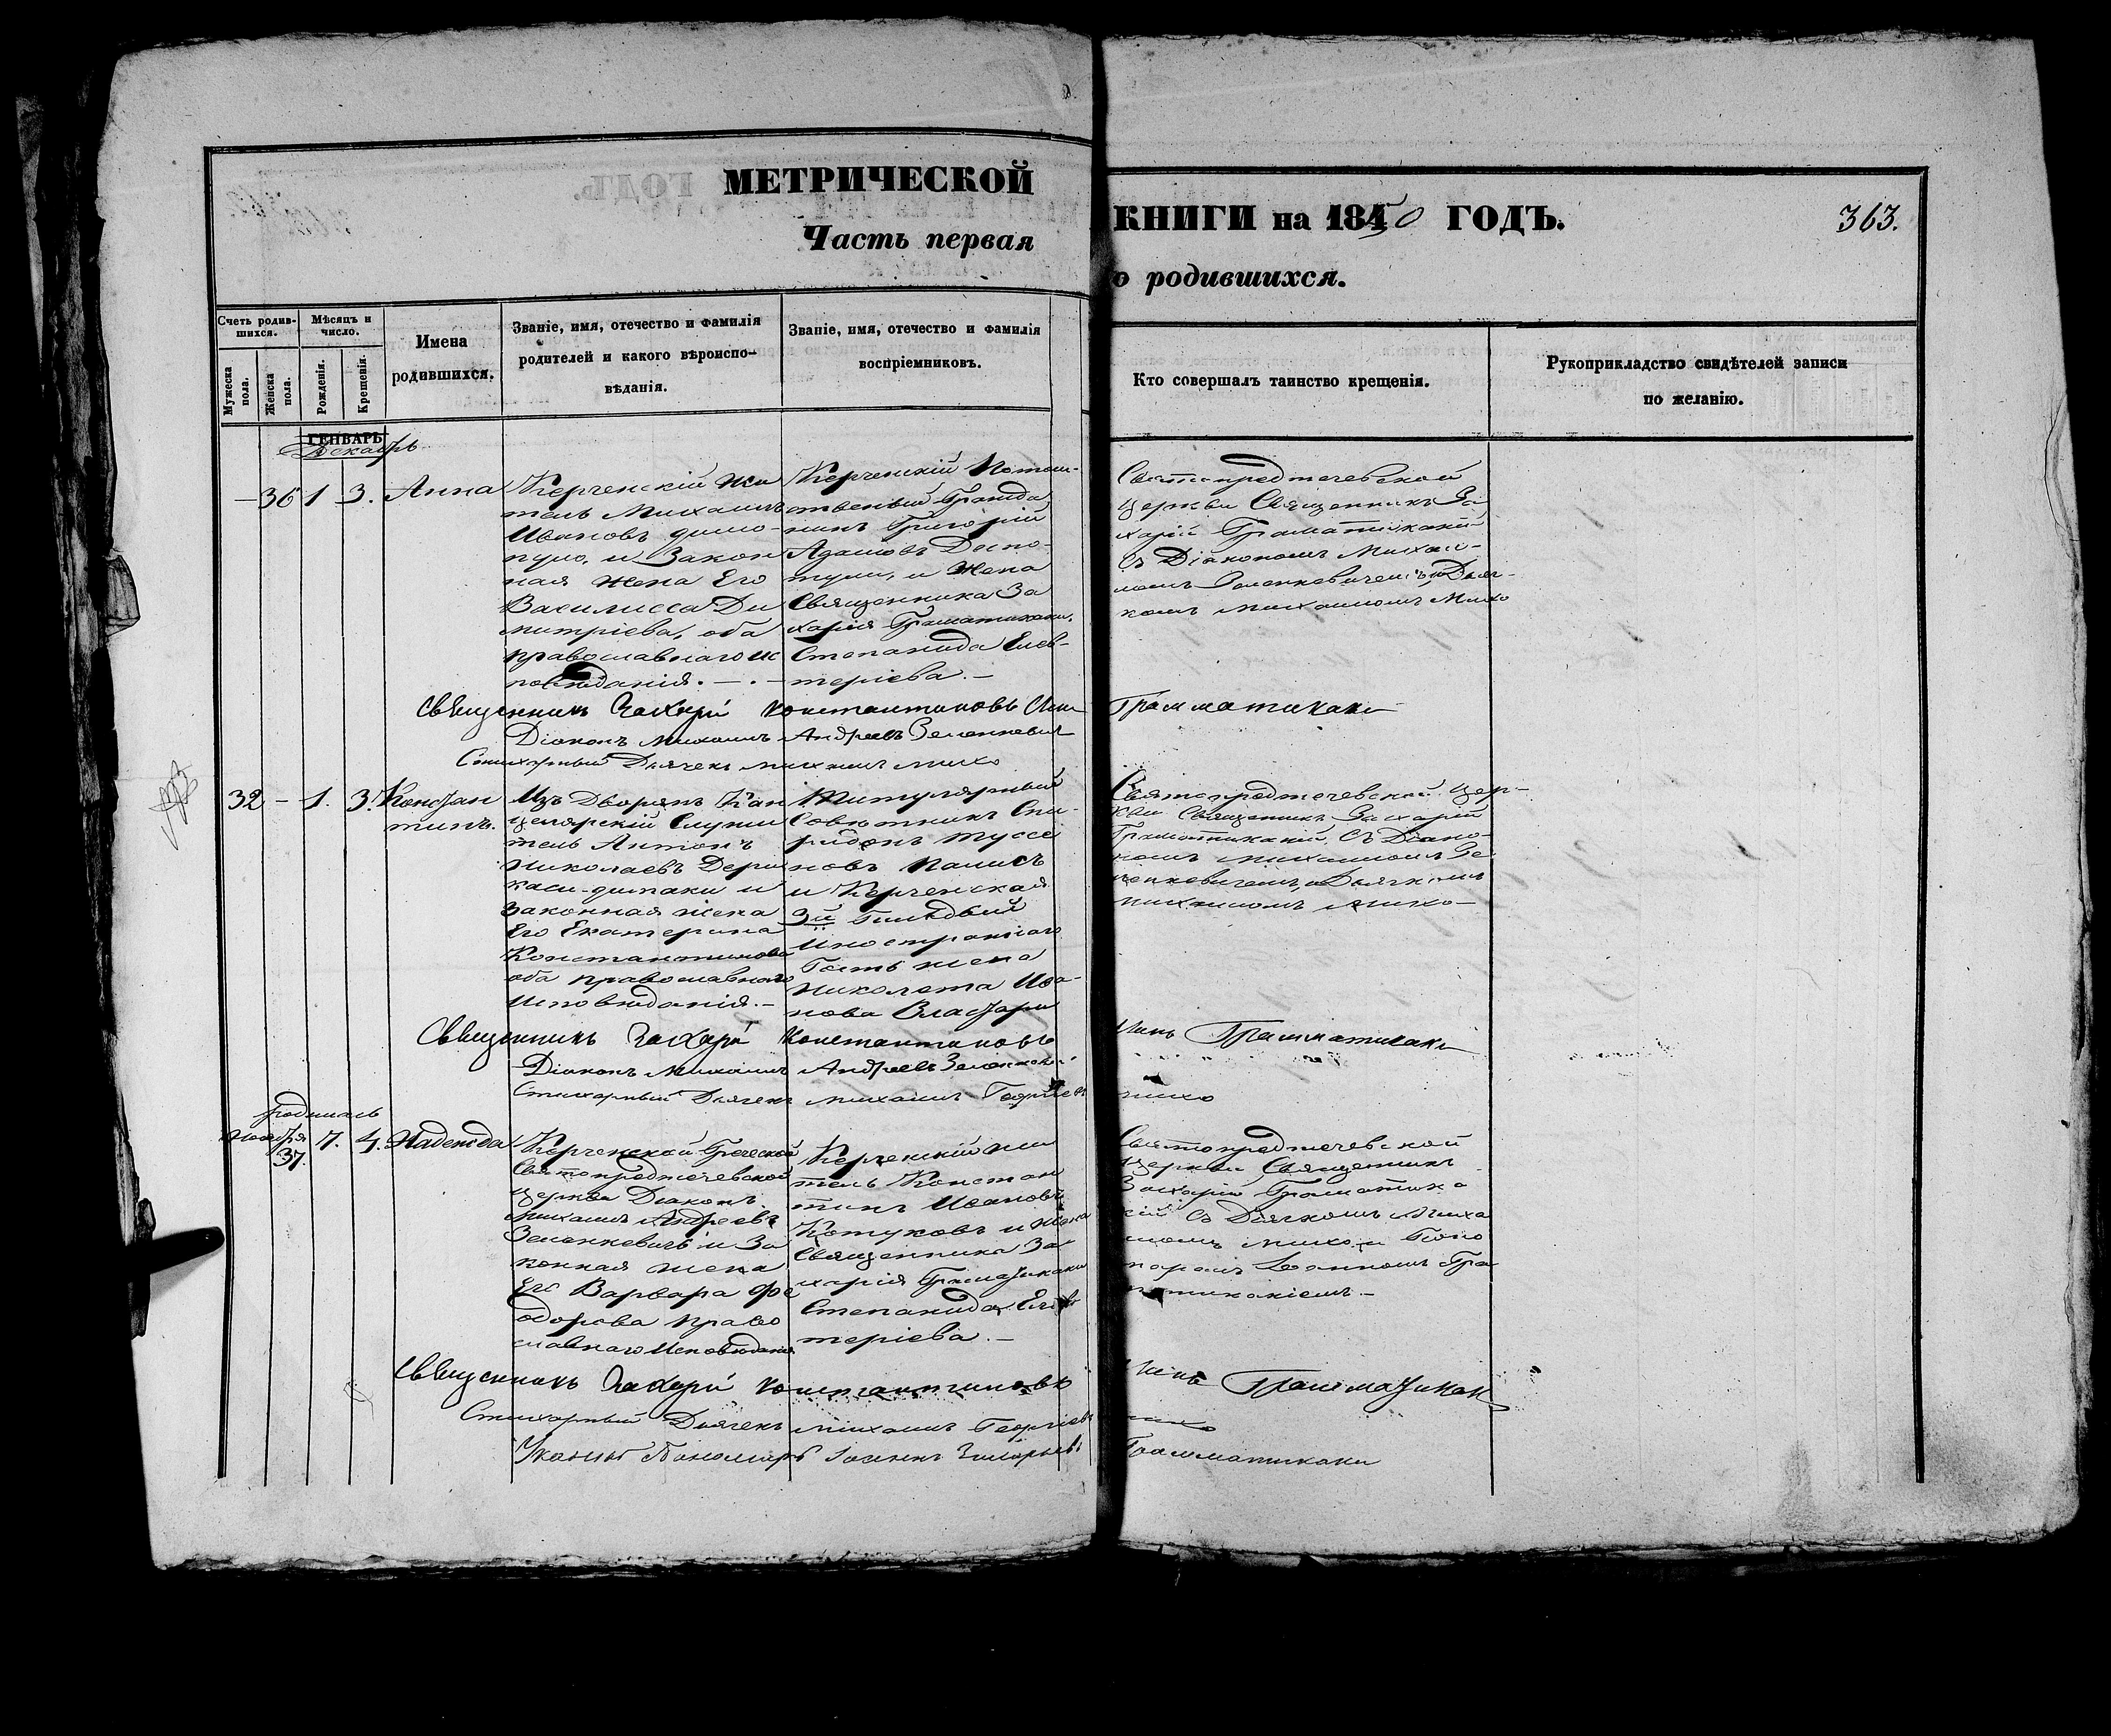 МЕТРИЧЕСКОЙ
Часть первая
КНИГИ на 1850 ГОДЪ.
363.
о родившихся.
Счетъ родив-
шихся.
Мужеска
пола.
Женска
пола.
Мѣсяцъ и
число.
Рожденія.
Крещенія.
Имена
родившихся.
Званіе, имя, отечество и фамилія
родителей и какого вѣроиспо-
вѣданія.
Званіе, имя, отечество и фамилія
воспріемниковъ.
Кто совершалъ таинство крещенія.
Рукоприкладство свидѣтелей записи
по желанію.
ГЕНВАРЬ
Декабрь
— 36 1 3. Анна
Керченскій жи
тель Михаилъ
Ивановъ димо-
пуло, и Закон
ная жена Его
Василисса Ди
митріева, оба
православнаго ис
повѣданія. —
Керченскій Потом-
ственый Гражда
нинъ Григорій
Адамовъ
и Жена
Священника За
харія Граматикаки,
Степанида Елев-
теріева. —
Святопредтечевской
Церкви Священникъ За
харій Граматикакій
съ Діакономъ Михаи-
ломъ Зеленкевичемъ, и Дьяч-
комъ Михаиломъ Михо
Священникъ Захарій Константиновъ Грамматикаки
Діаконъ Михаилъ Андреевъ Зеленкевич
Стихарный Дьячекъ михаилъ михо
32 — 1. 3. Констан
тинъ.
Изъ Дворянъ Кан
целярскій Служи
тель Антонъ
Николаевъ Дери
каси-димаки и
Законная жена
Его Екатерина
Константинова
оба православнаго
Исповѣданія. —
Титулярный
Совѣтникъ Спи-
ридонъ
и Керченская
3й Гильдіи
Иностраннаго
Гость жена
Николета Ива-
нова
Святопредтечевской Цер-
кви Священникъ Захарій
Граматикакій, съ Діако-
номъ Михаиломъ Зе
ленкевичемъ, и Дьячкомъ
михаиломъ михо —
Священникъ Захарій Константиновъ Грамматикаки
Діаконъ Михаилъ Андреевъ
Стихарный Дьячекъ михаилъ Георгіевъ михо
родилась
Ноября
37. 7. 4. Надежда
Керченской Греческой
Святопредтечевской
Церкви Діаконъ
Михаилъ Андреевъ
Зеленкевичь и За
конная жена
Его Варвара Фе
одорова право
славнаго Исповѣданія
Керченскій жи
тель Констан
тинъ Ивановъ
Котуковъ и жена
Священника За
харія Граматикаки
Степанида Елев
теріева. —
Святопредтечевской
Церкви Священникъ
Захарій Граматика
кій съ Дьячкомъ Миха
иломъ михо и Поно
маремъ Іоанномъ Гра
матикакіемъ. —
Священникъ Захарій Константиновъ Грамматикаки
Стихарный Дьячекъ михаилъ Георгіевъ михо
Пономарь Іоаннъ Грамматикаки